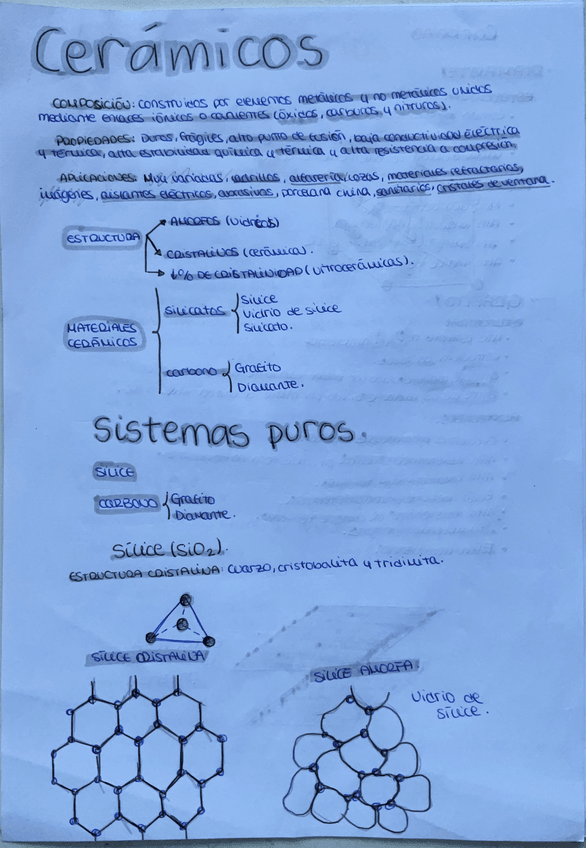 Cerámicos
COMPOSICIÓN: construidos por elementos metálicos y no metálicos unidos
mediante enlaces iónicos o covalentes (óxidos, carburos, y nitruros).
PROPIEDADES: Duros, frágiles, alto punto de fusión, baja conductividad eléctrica
y térmica, alta estabilidad química y térmica y alta resistencia a compresión.
APLICACIONES: Muy variadas, ladrillos, alfarería, lozas, materiales refractarios,
imágenes, aislantes eléctricos, abrasivos, porcelana china, sanitarios, cristales de ventana.
ESTRUCTURA
AMORFOS (vidrios)
CRISTALINOS (cerámica).
% DE CRISTALINIDAD (vitrocerámicas).
MATERIALES
CERÁMICOS
silicatos
Silice
Vidrio de silice
Silicato.
carbono
Grafito
Diamante.
Sistemas puros.
SÍLICE
CARBONO
Grafito
Diamante.
Sílice (SiO₂).
ESTRUCTURA CRISTALINA: cuarzo, cristobalita y tridimita.
SÍLICE CRISTALINA
SÍLICE AMORFA
Vidrio de
sílice.